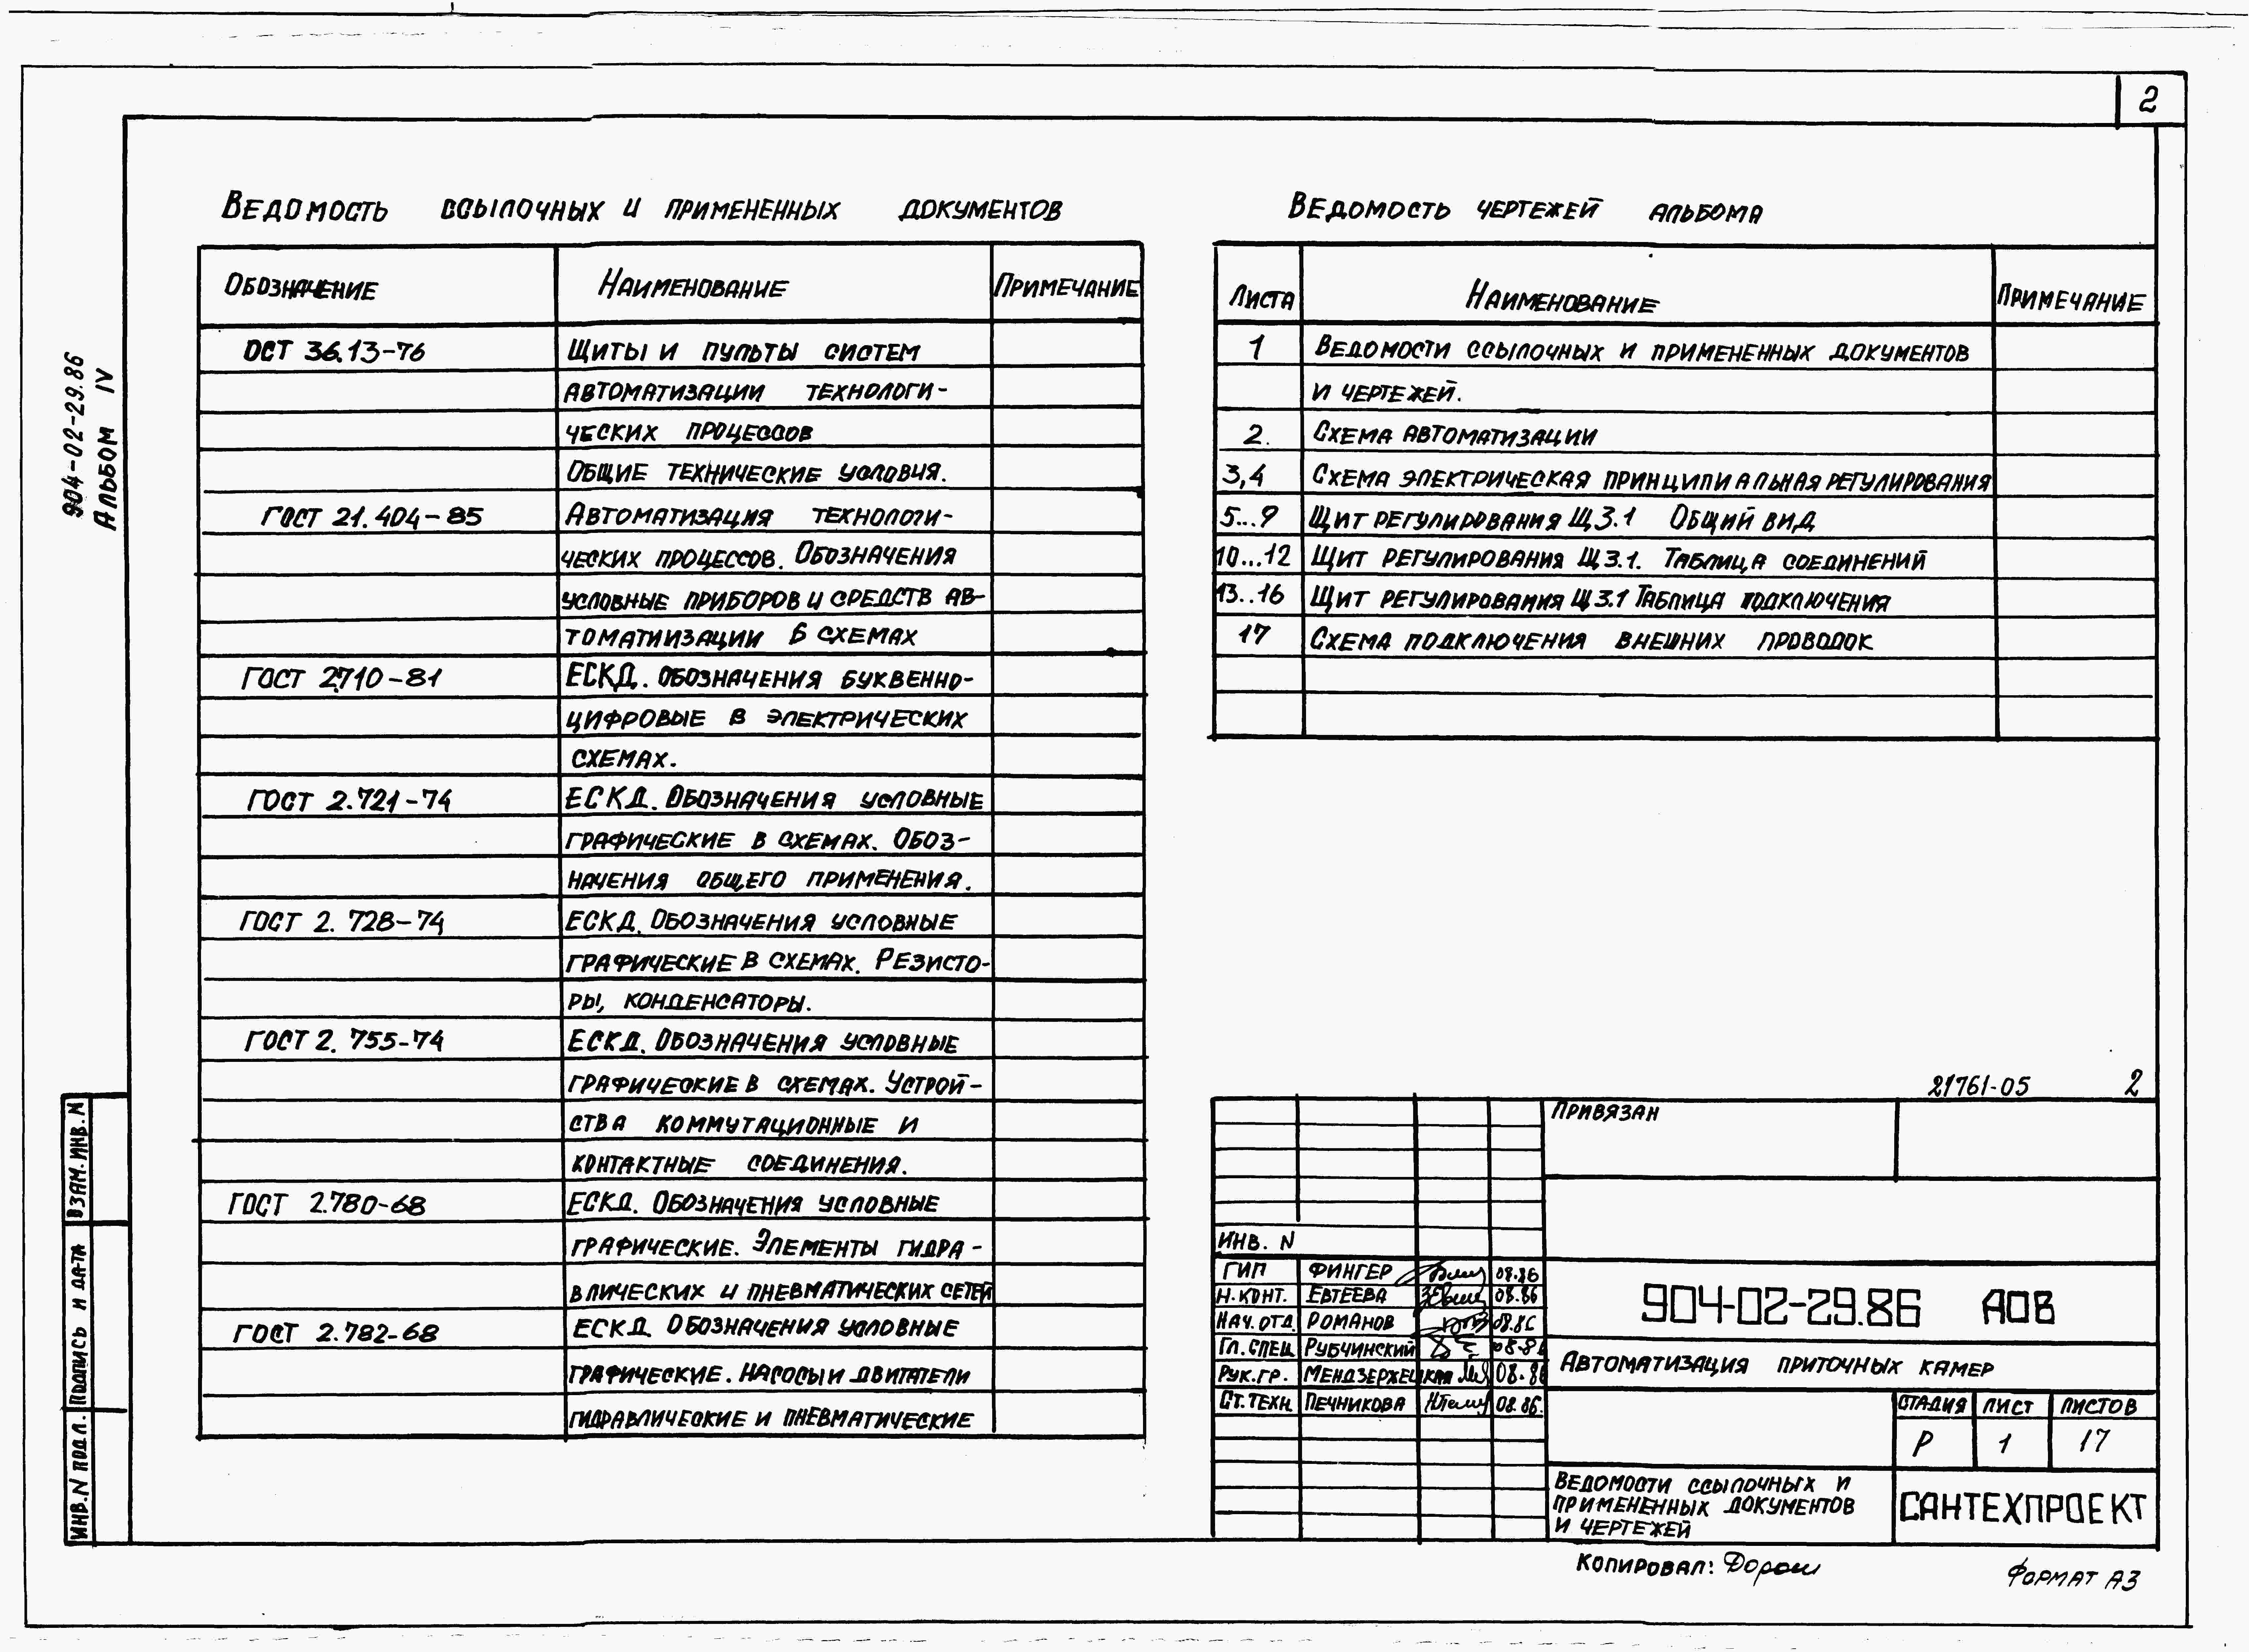 2
904-02-29.86
Альбом IV
Ведомость ссылочных и примененных документов
Обозначение Наименование Примечание
ОСТ 36.13-76 Щиты и пульты систем
автоматизации технологи-
ческих процессов
общие технические условия.
ГОСТ 21.404-85 Автоматизация технологи-
ческих процессов. Обозначения
условные приборов и средств ав-
томатиизации в схемах
ГОСТ 2.710-81 ЕСКД. Обозначения буквенно-
цифровые в электрических
схемах.
ГОСТ 2.721-74 ЕСКД. Обозначения условные
графические в схемах. Обоз-
начения общего применения.
ГОСТ 2.728-74 ЕСКД. Обозначения условные
графические в схемах. Резисто-
ры, конденсаторы.
ГОСТ 2.755-74 ЕСКД. Обозначения условные
графические в схемах. Устрой-
ства коммутационные и
контактные соединения.
ГОСТ 2.780-68 ЕСКД. Обозначения условные
графические. Элементы гидра-
влических и пневматических сетей
ГОСТ 2.782-68 ЕСКД Обозначения условные
графические. Насосы и двигатели
гидравлические и пневматические
Ведомость чертежей альбома
Листа Наименование Примечание
1 Ведомости ссылочных и примененных документов
и чертежей.
2. Схема автоматизации
3,4 Схема электрическая принципиальная регулирования
5...9 Щит регулирования Щ3.1 Общий вид
10...12 Щит регулирования Щ3.1. Таблица соединений
13..16 Щит регулирования Щ3.1 Таблица подключения
17 Схема подключения внешних проводок
21761-05 2
Привязан
Инв. N
ГИП Фингер 08.86
Н.конт. Евтеева 08.86
Нач.отд. Романов 08.86
Гл.спец Рубчинский 08.86
Рук.гр. Мендзержецкая 08.86
Ст.техн. Печникова 08.86.
904-02-29.86 АОВ
Автоматизация приточных камер
Стадия Лист Листов
Р 1 17
Ведомости ссылочных и
примененных документов
и чертежей
САНТЕХПРОЕКТ
Копировал:
Формат А3
Взам. инв. N
Подпись и дата
Инв. N подл.